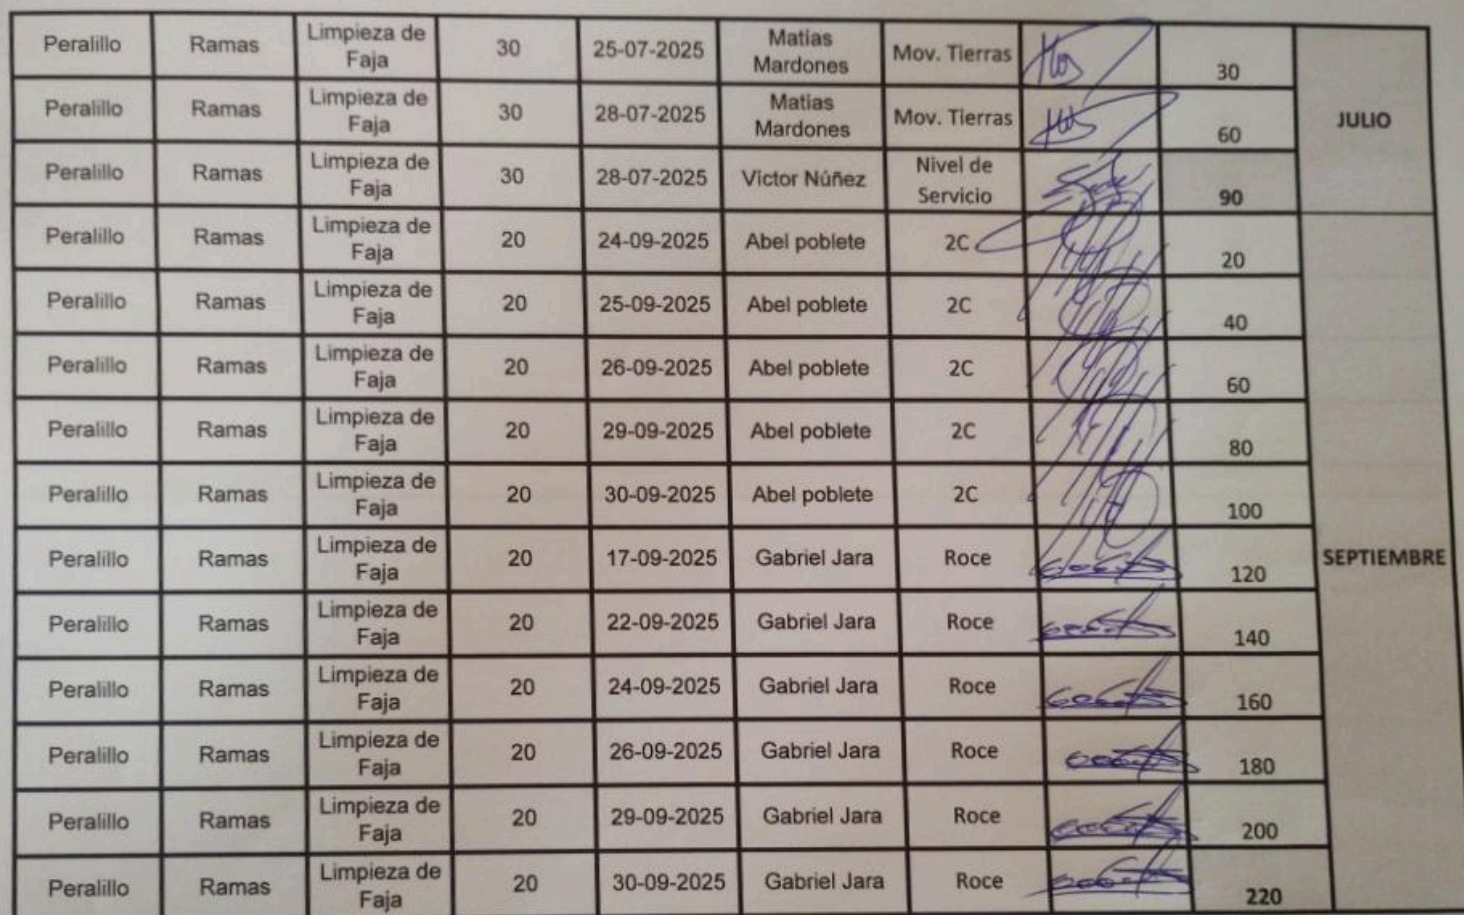 Peralillo Ramas Limpieza de Faja 30 25-07-2025 Matias Mardones Mov. Tierras 30 JULIO
Peralillo Ramas Limpieza de Faja 30 28-07-2025 Matias Mardones Mov. Tierras 60
Peralillo Ramas Limpieza de Faja 30 28-07-2025 Victor Núñez Nivel de Servicio 90
Peralillo Ramas Limpieza de Faja 20 24-09-2025 Abel poblete 2C 20 SEPTIEMBRE
Peralillo Ramas Limpieza de Faja 20 25-09-2025 Abel poblete 2C 40
Peralillo Ramas Limpieza de Faja 20 26-09-2025 Abel poblete 2C 60
Peralillo Ramas Limpieza de Faja 20 29-09-2025 Abel poblete 2C 80
Peralillo Ramas Limpieza de Faja 20 30-09-2025 Abel poblete 2C 100
Peralillo Ramas Limpieza de Faja 20 17-09-2025 Gabriel Jara Roce 120
Peralillo Ramas Limpieza de Faja 20 22-09-2025 Gabriel Jara Roce 140
Peralillo Ramas Limpieza de Faja 20 24-09-2025 Gabriel Jara Roce 160
Peralillo Ramas Limpieza de Faja 20 26-09-2025 Gabriel Jara Roce 180
Peralillo Ramas Limpieza de Faja 20 29-09-2025 Gabriel Jara Roce 200
Peralillo Ramas Limpieza de Faja 20 30-09-2025 Gabriel Jara Roce 220